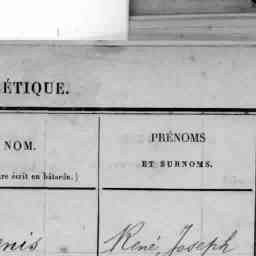 ÉTIQUE.
NOM.
PRÉNOMS
ET SURNOMS.
re écrit en bâtarde.)
enis
René Joseph